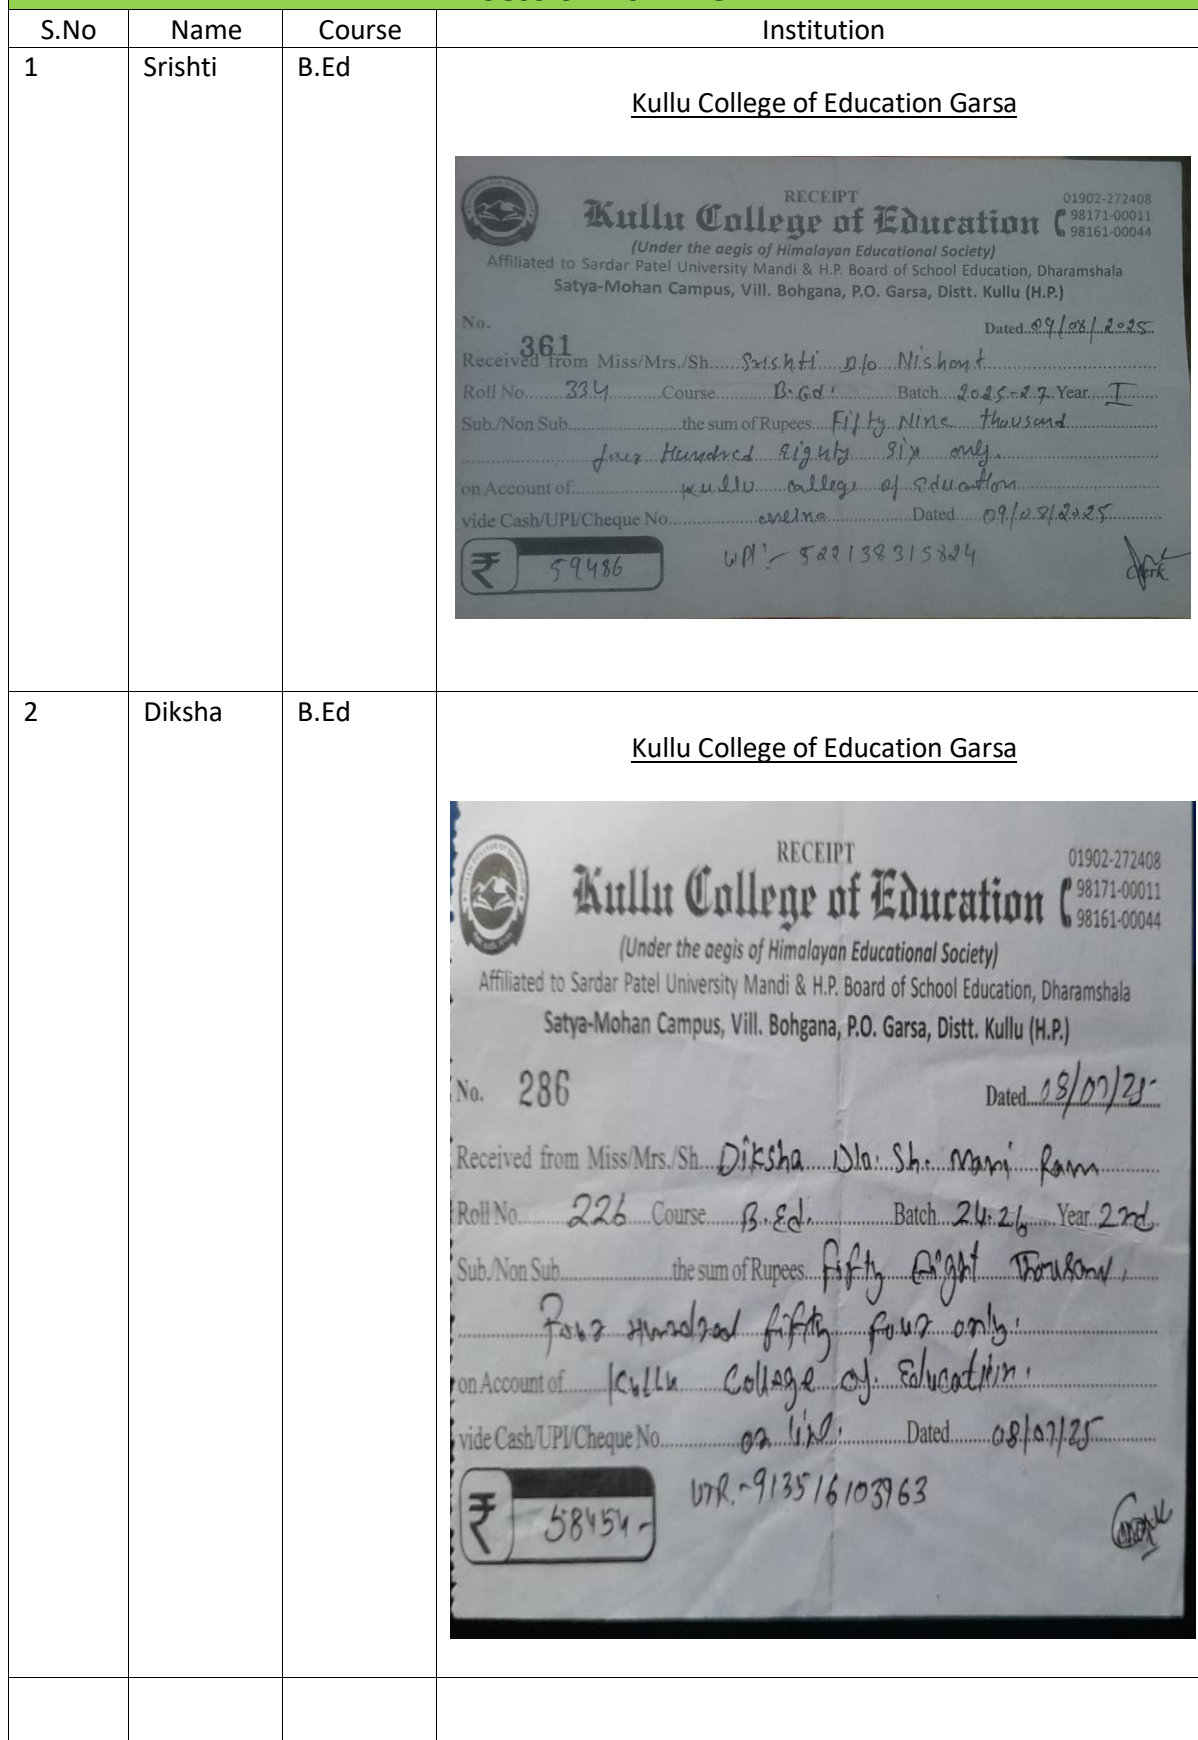 S.No Name Course Institution
1 Srishti B.Ed
Kullu College of Education Garsa
RECEIPT
Kullu College of Education
01902-272408
98171-00011
98161-00044
(Under the aegis of Himalayan Educational Society)
Affiliated to Sardar Patel University Mandi & H.P. Board of School Education, Dharamshala
Satya-Mohan Campus, Vill. Bohgana, P.O. Garsa, Distt. Kullu (H.P.)
No. 361 Dated 09/08/2025
Received from Miss/Mrs./Sh. Srishti D/o Nishant
Roll No. 334 Course B.Ed. Batch 2025-27 Year I
Sub./Non Sub. the sum of Rupees Fifty Nine thousand
four Hundred Eighty Six only.
on Account of kullu college of Education
vide Cash/UPI/Cheque No. online Dated 09/08/2025
₹ 59486 UPI:- 522138315824
Clerk
2 Diksha B.Ed
Kullu College of Education Garsa
RECEIPT
Kullu College of Education
01902-272408
98171-00011
98161-00044
(Under the aegis of Himalayan Educational Society)
Affiliated to Sardar Patel University Mandi & H.P. Board of School Education, Dharamshala
Satya-Mohan Campus, Vill. Bohgana, P.O. Garsa, Distt. Kullu (H.P.)
No. 286 Dated 08/07/25
Received from Miss/Mrs./Sh. Diksha D/o. Sh. Mani Ram
Roll No. 226 Course B.Ed. Batch 24-26 Year 2nd
Sub./Non Sub. the sum of Rupees Fifty Eight Thousand,
Four Hundred fifty four only.
on Account of Kullu College of Education.
vide Cash/UPI/Cheque No. on line. Dated 08/07/25
₹ 58454- UTR.-913516103963